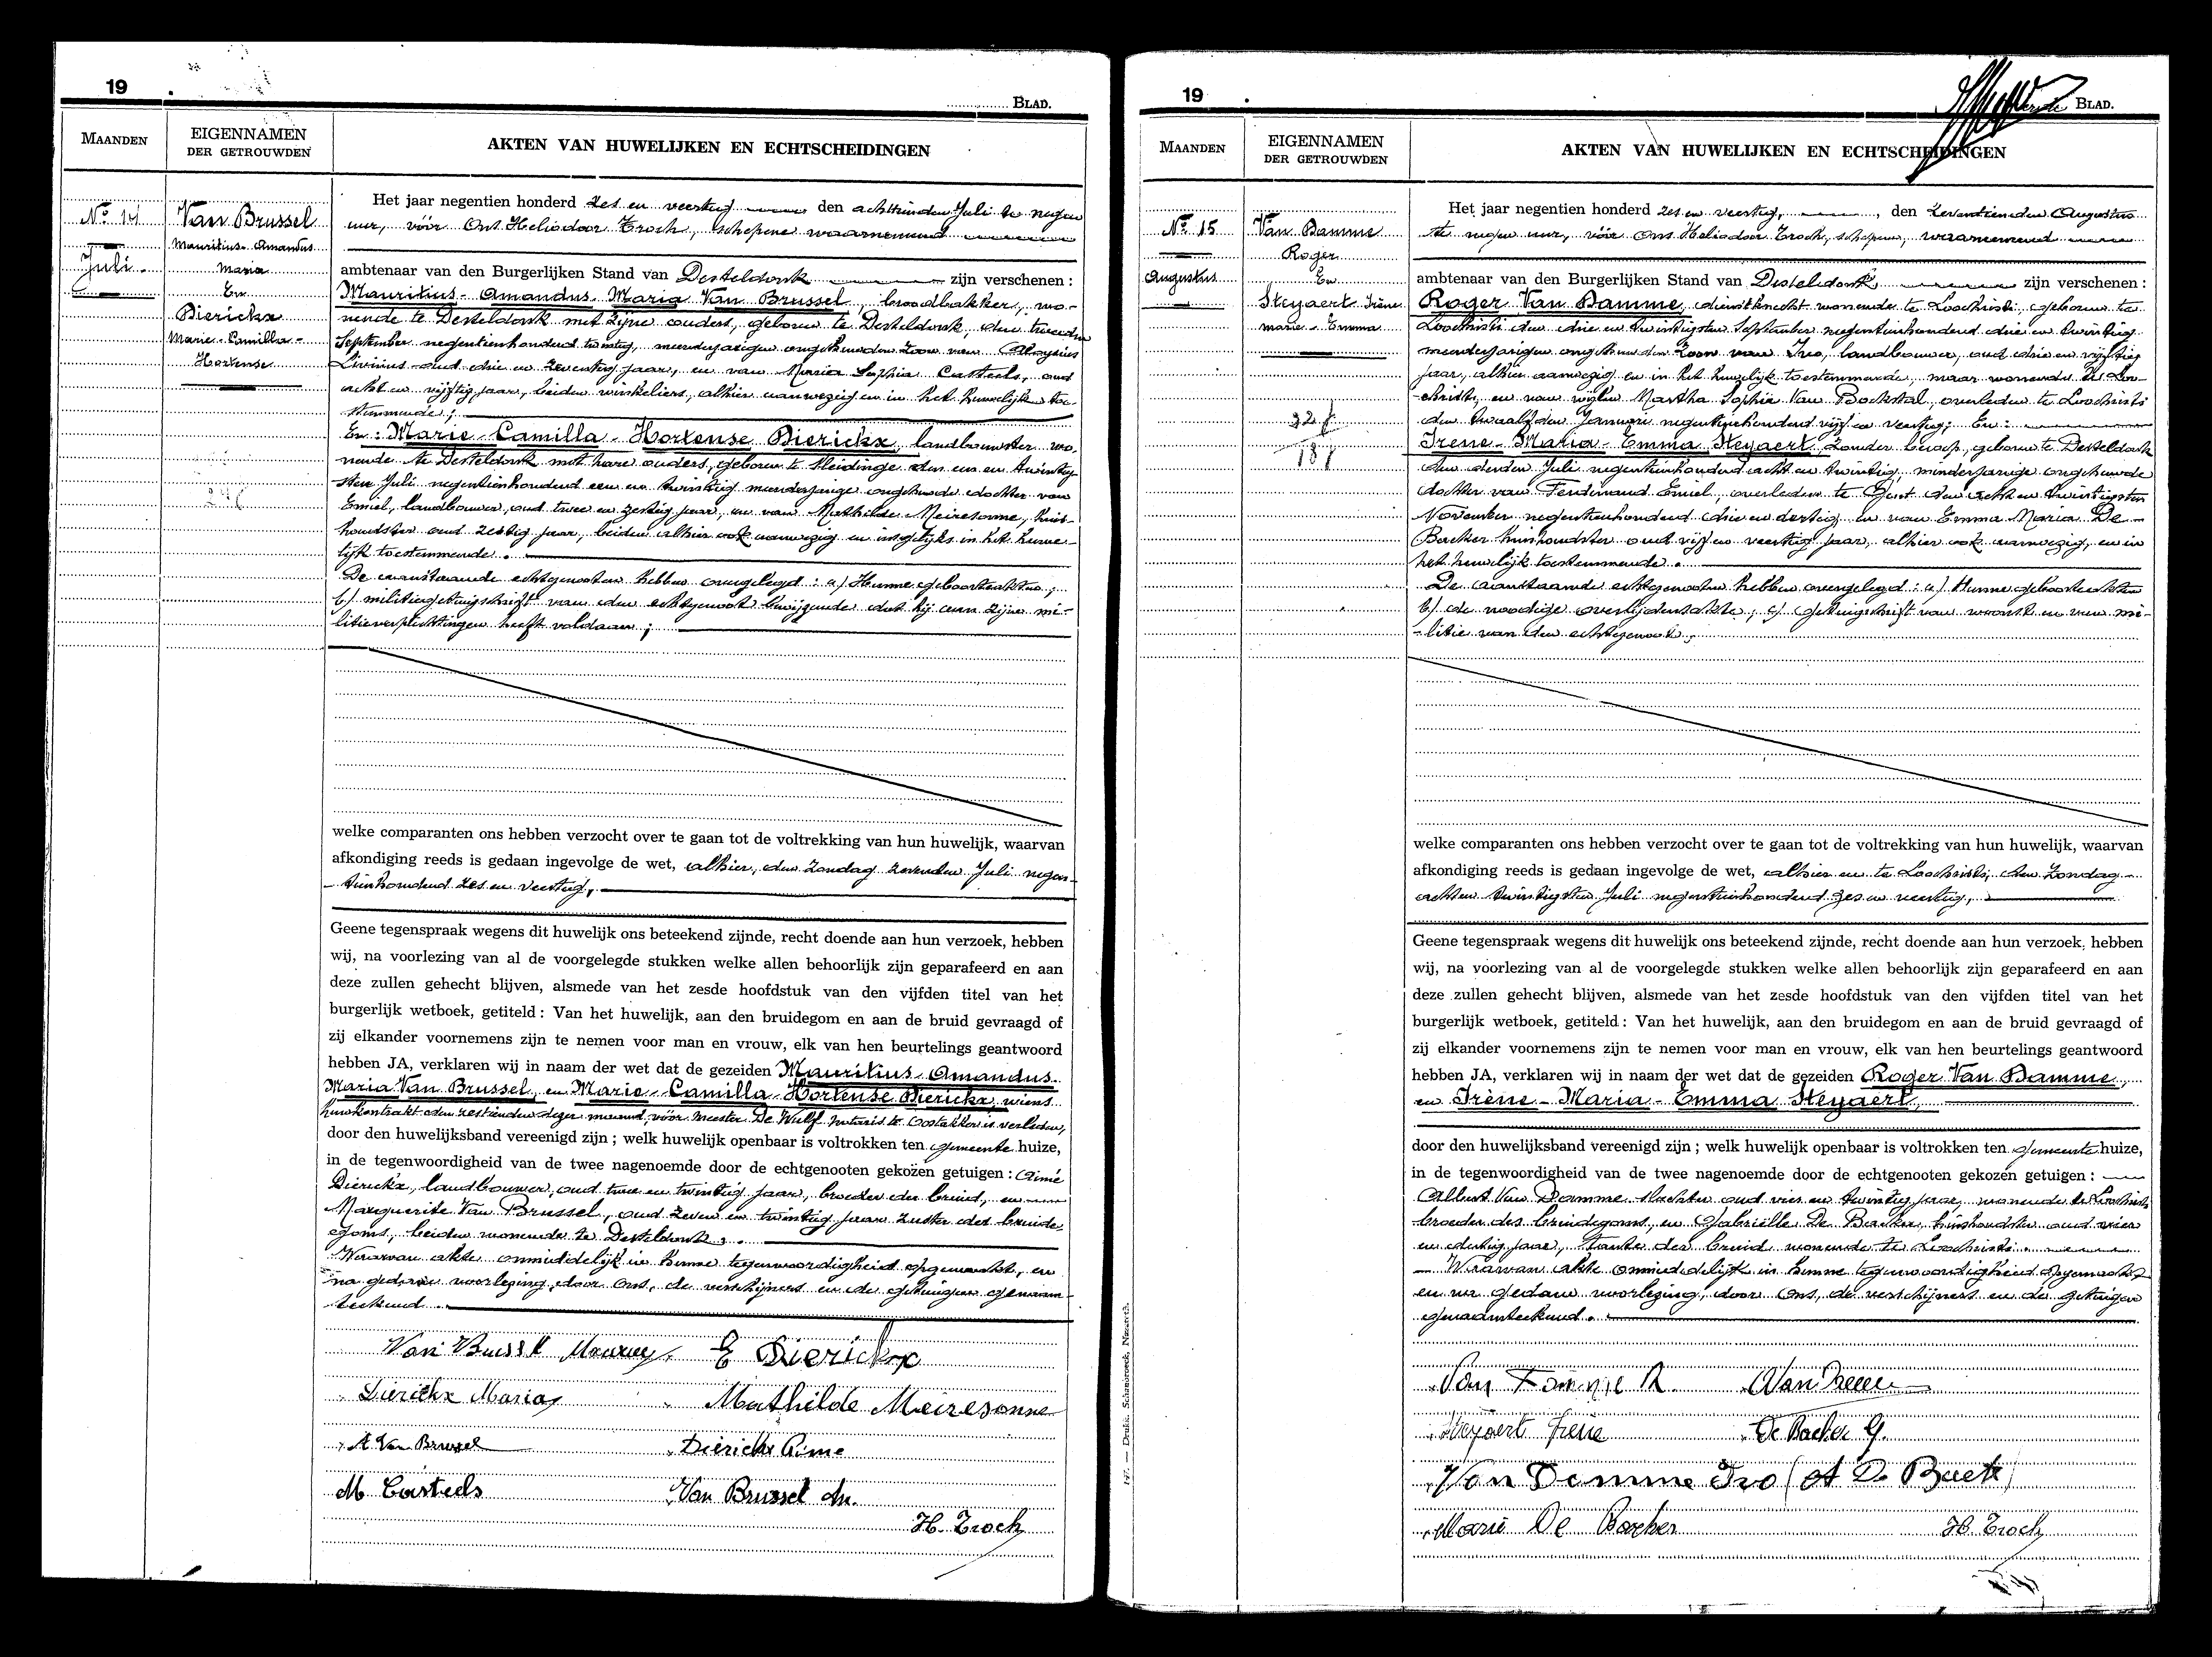 19
BLAD.
MAANDEN
EIGENNAMEN
DER GETROUWDEN
AKTEN VAN HUWELIJKEN EN ECHTSCHEIDINGEN
No 14
Juli
Van Brussel
Mauritius-Amandus
Maria
En
Dierickx
Marie-Camilla-
Hortense
Het jaar negentien honderd zes en veertig den achttienden Juli te negen
uur, vóór Ons Heliodoor Troch, schepene waarnemend
ambtenaar van den Burgerlijken Stand van Desteldonk zijn verschenen :
Mauritius-Amandus-Maria Van Brussel, broodbakker, wo-
nende te Desteldonk met zijne ouders, geboren te Desteldonk, den tweeden
September negentienhonderd twintig, meerderjarigen ongehuwden zoon van Aloysius
Livinus oud drie en zeventig jaar, en van Maria Sophia Casteels, oud
acht en vijftig jaar, beiden winkeliers, alhier aanwezig en in het huwelijk toe-
stemmende ;
En : Marie-Camilla-Hortense Dierickx, landbouwster wo-
nende te Desteldonk met hare ouders, geboren te Sleidinge den een en twintig-
sten Juli negentienhonderd een en twintig meerderjarige ongehuwde dochter van
Emiel, landbouwer, oud twee en zestig jaar, en van Mathilde Meiresonne, huis-
houdster oud zestig jaar, beiden alhier ook aanwezig en insgelijks in het huwe-
lijk toestemmende.
De aanstaande echtgenooten hebben overgelegd : a/ Hunne geboorteakten ;
b/ militiegetuigschrift van den echtgenoot bewijzende dat hij aan zijne mi-
litieverplichtingen heeft voldaan ;
welke comparanten ons hebben verzocht over te gaan tot de voltrekking van hun huwelijk, waarvan
afkondiging reeds is gedaan ingevolge de wet, alhier, den Zondag zevenden Juli negen-
tienhonderd zes en veertig,
Geene tegenspraak wegens dit huwelijk ons beteekend zijnde, recht doende aan hun verzoek, hebben
wij, na voorlezing van al de voorgelegde stukken welke allen behoorlijk zijn geparafeerd en aan
deze zullen gehecht blijven, alsmede van het zesde hoofdstuk van den vijfden titel van het
burgerlijk wetboek, getiteld : Van het huwelijk, aan den bruidegom en aan de bruid gevraagd of
zij elkander voornemens zijn te nemen voor man en vrouw, elk van hen beurtelings geantwoord
hebben JA, verklaren wij in naam der wet dat de gezeiden Mauritius-Amandus-
Maria Van Brussel, en Marie-Camilla-Hortense Dierickx, wiens
huwkontrakt den zestienden dezer maand, vóór Meester De Wulf notaris te Oostakker is verleden,
door den huwelijksband vereenigd zijn ; welk huwelijk openbaar is voltrokken ten gemeente huize,
in de tegenwoordigheid van de twee nagenoemde door de echtgenooten gekozen getuigen : Aimé
Dierickx, landbouwer, oud twee en twintig jaar, broeder der bruid, en
Marguerite Van Brussel, oud zeven en twintig jaar zuster des bruide-
goms, beiden wonende te Desteldonk.
Waarvan akte onmiddelijk in hunne tegenwoordigheid opgemaakt, en
na gedane voorlezing, door Ons, de verschijners en de getuigen genaam-
teekend.
Van Brussel Maurus. E Dierickx
Dierickx Maria Mathilde Meiresonne
A. Van Brussel Dierickx Aimé
M Casteels Van Brussel M.
H. Troch
19
BLAD.
MAANDEN
EIGENNAMEN
DER GETROUWDEN
AKTEN VAN HUWELIJKEN EN ECHTSCHEIDINGEN
No 15
Augustus
Van Damme
Roger
En
Steyaert Irène
Marie-Emma
Het jaar negentien honderd zes en veertig, den zeventienden Augustus
te negen uur, vóór Ons Heliodoor Troch, schepene, waarnemend
ambtenaar van den Burgerlijken Stand van Desteldonk, zijn verschenen :
Roger Van Damme, dienstknecht wonende te Loochristi, geboren te
Loochristi den drie en twintigsten September negentienhonderd drie en twintig
meerderjarigen ongehuwden zoon van Ivo, landbouwer, oud drie en vijftig
jaar, alhier aanwezig en in het huwelijk toestemmende, maar wonende te Loo-
christi, en van wijlen Martha Sophia Van Bockstal, overleden te Loochristi
den twaalfden Januari negentienhonderd vijf en veertig; En :
Irène-Maria-Emma Steyaert zonder beroep, geboren te Desteldonk
den derden Juli negentienhonderd acht en twintig, minderjarige ongehuwde
dochter van Ferdinand Emiel, overleden te Gent den acht en twintigsten
November negentienhonderd drie en dertig, en van Emma Maria De
Backer huishoudster oud vijf en veertig jaar, alhier ook aanwezig, en in
het huwelijk toestemmende.
De aanstaande echtgenooten hebben overgelegd : a/ Hunne geboorteakten
b/ de noodige overlijdensakte ; c/ getuigschrift van woonst en van mi-
litie van den echtgenoot.
welke comparanten ons hebben verzocht over te gaan tot de voltrekking van hun huwelijk, waarvan
afkondiging reeds is gedaan ingevolge de wet, alhier en te Loochristi, den Zondag
acht en twintigsten Juli negentienhonderd zes en veertig,
Geene tegenspraak wegens dit huwelijk ons beteekend zijnde, recht doende aan hun verzoek, hebben
wij, na voorlezing van al de voorgelegde stukken welke allen behoorlijk zijn geparafeerd en aan
deze zullen gehecht blijven, alsmede van het zesde hoofdstuk van den vijfden titel van het
burgerlijk wetboek, getiteld : Van het huwelijk, aan den bruidegom en aan de bruid gevraagd of
zij elkander voornemens zijn te nemen voor man en vrouw, elk van hen beurtelings geantwoord
hebben JA, verklaren wij in naam der wet dat de gezeiden Roger Van Damme,
en Irène-Maria-Emma Steyaert,
door den huwelijksband vereenigd zijn ; welk huwelijk openbaar is voltrokken ten gemeente huize,
in de tegenwoordigheid van de twee nagenoemde door de echtgenooten gekozen getuigen :
Albert Van Damme slachter oud vier en twintig jaar, wonende te Loochristi
broeder des bruidegoms, en Gabriëlle De Backer, huishoudster oud vier
en dertig jaar, tante der bruid wonende te Loochristi.
Waarvan akte onmiddelijk in hunne tegenwoordigheid opgemaakt
en na gedane voorlezing, door Ons, de verschijners en de getuigen
genaamteekend.
Van Damme R.
Steyaert Irène De Backer G.
Van Damme Ivo
Marie De Backer H. Troch